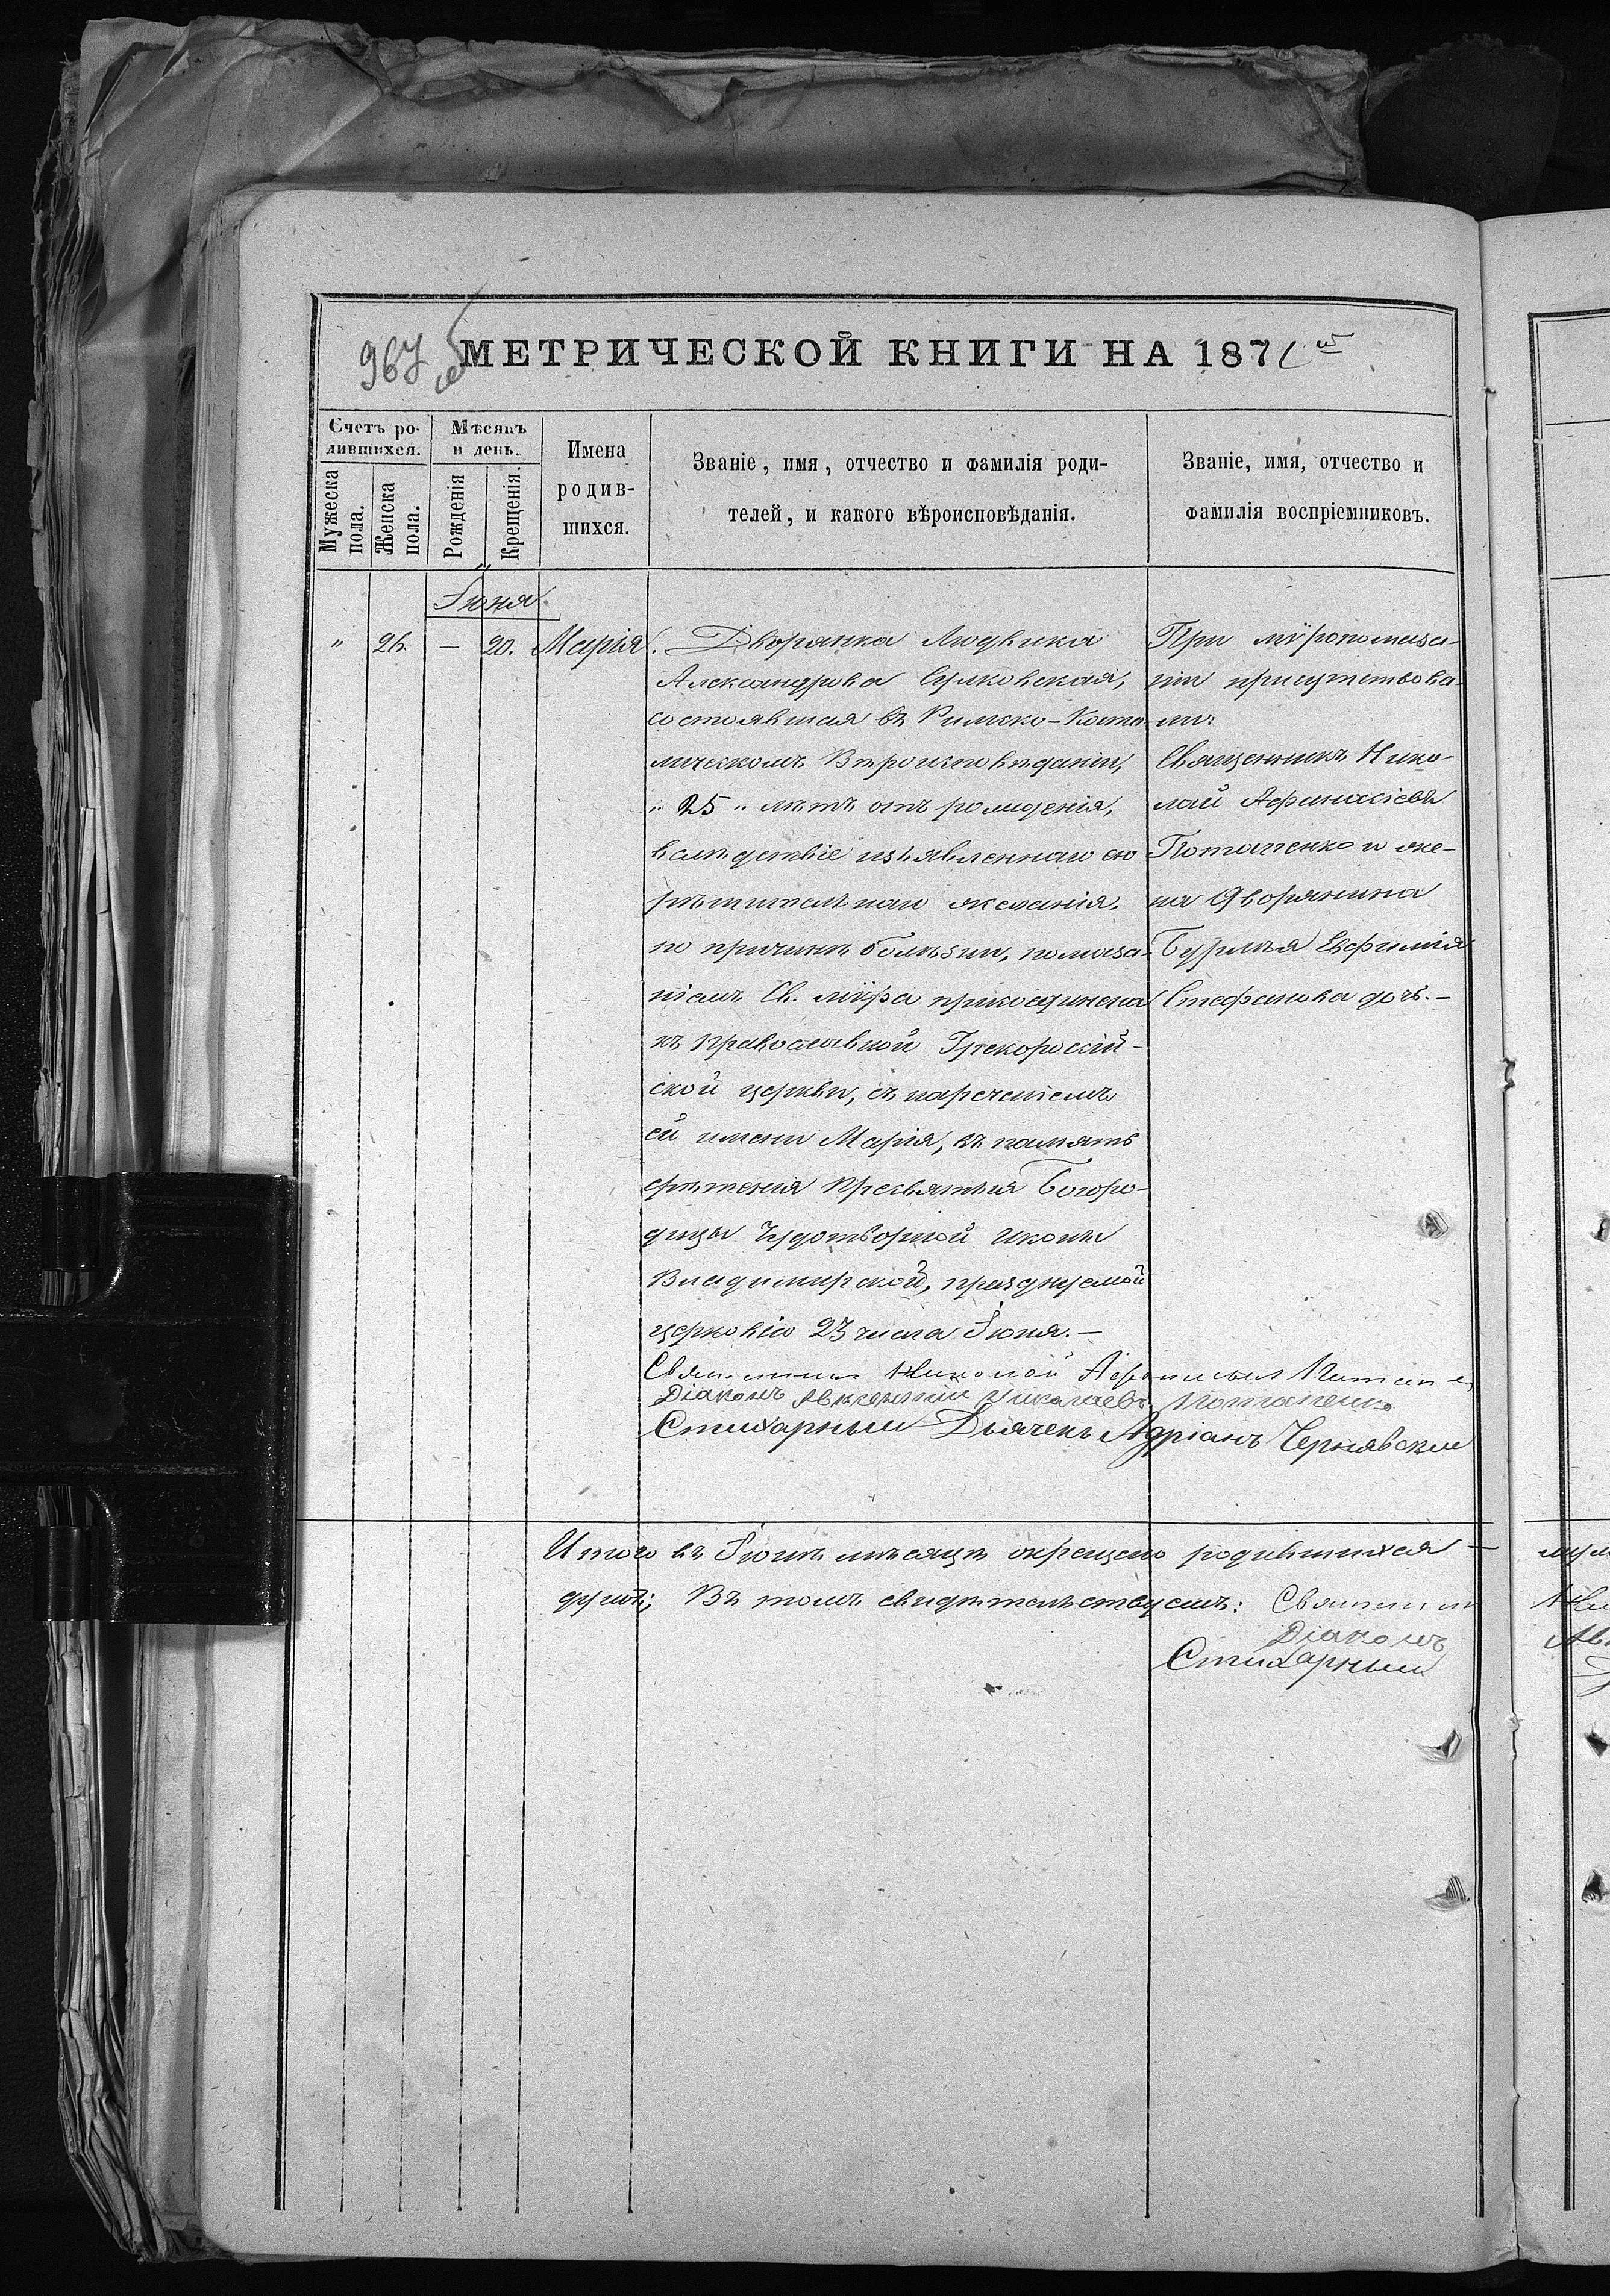 967
МЕТРИЧЕСКОЙ КНИГИ НА 1871
Счетъ ро-
дившихся.
Мужеска пола.
Женска пола.
Мѣсяцъ
и день.
Рожденія
Крещенія.
Имена
родив-
шихся.
Званіе, имя, отчество и фамилія роди-
телей, и какого вѣроисповѣданія.
Званіе, имя, отчество и
фамилія воспріемниковъ.
Іюня
" 26. — 20. Марія.
Дворянка Людвика
Александрова Сулковская,
состоявшая въ Римско-Като-
лическомъ Вѣроисповѣданіи,
„ 25 „ лѣтъ отъ рожденія,
вслѣдствіе изъявленнаго ею
рѣшительнаго желанія,
по причинѣ болѣзни, помаза-
ніемъ Св. мѵра присоединена
къ православной Грекороссій-
ской церкви, съ нареченіемъ
ей имени Марія, въ память
срѣтенія Пресвятыя Богоро-
дицы Чудотворной иконы
Владимирской, празднуемой
церковію 23 числа Іюня. —
При мѵропомаза-
ніи присутствова-
ли:
Священникъ Нико-
лай Афанасіевъ
Потапенко и же-
на Дворянина
Евфимія
Стефанова дочь. —
Священникъ Николай Афанасьевъ Потапен
Діаконъ Авксентій Николаевъ Потапенко
Стихарный Дьячекъ Адріанъ Чернявскій
Итого въ Іюнѣ мѣсяцѣ окрещено родившихся —
душъ; Въ томъ свидѣтельствуемъ: Священник
Діаконъ
Стихарный